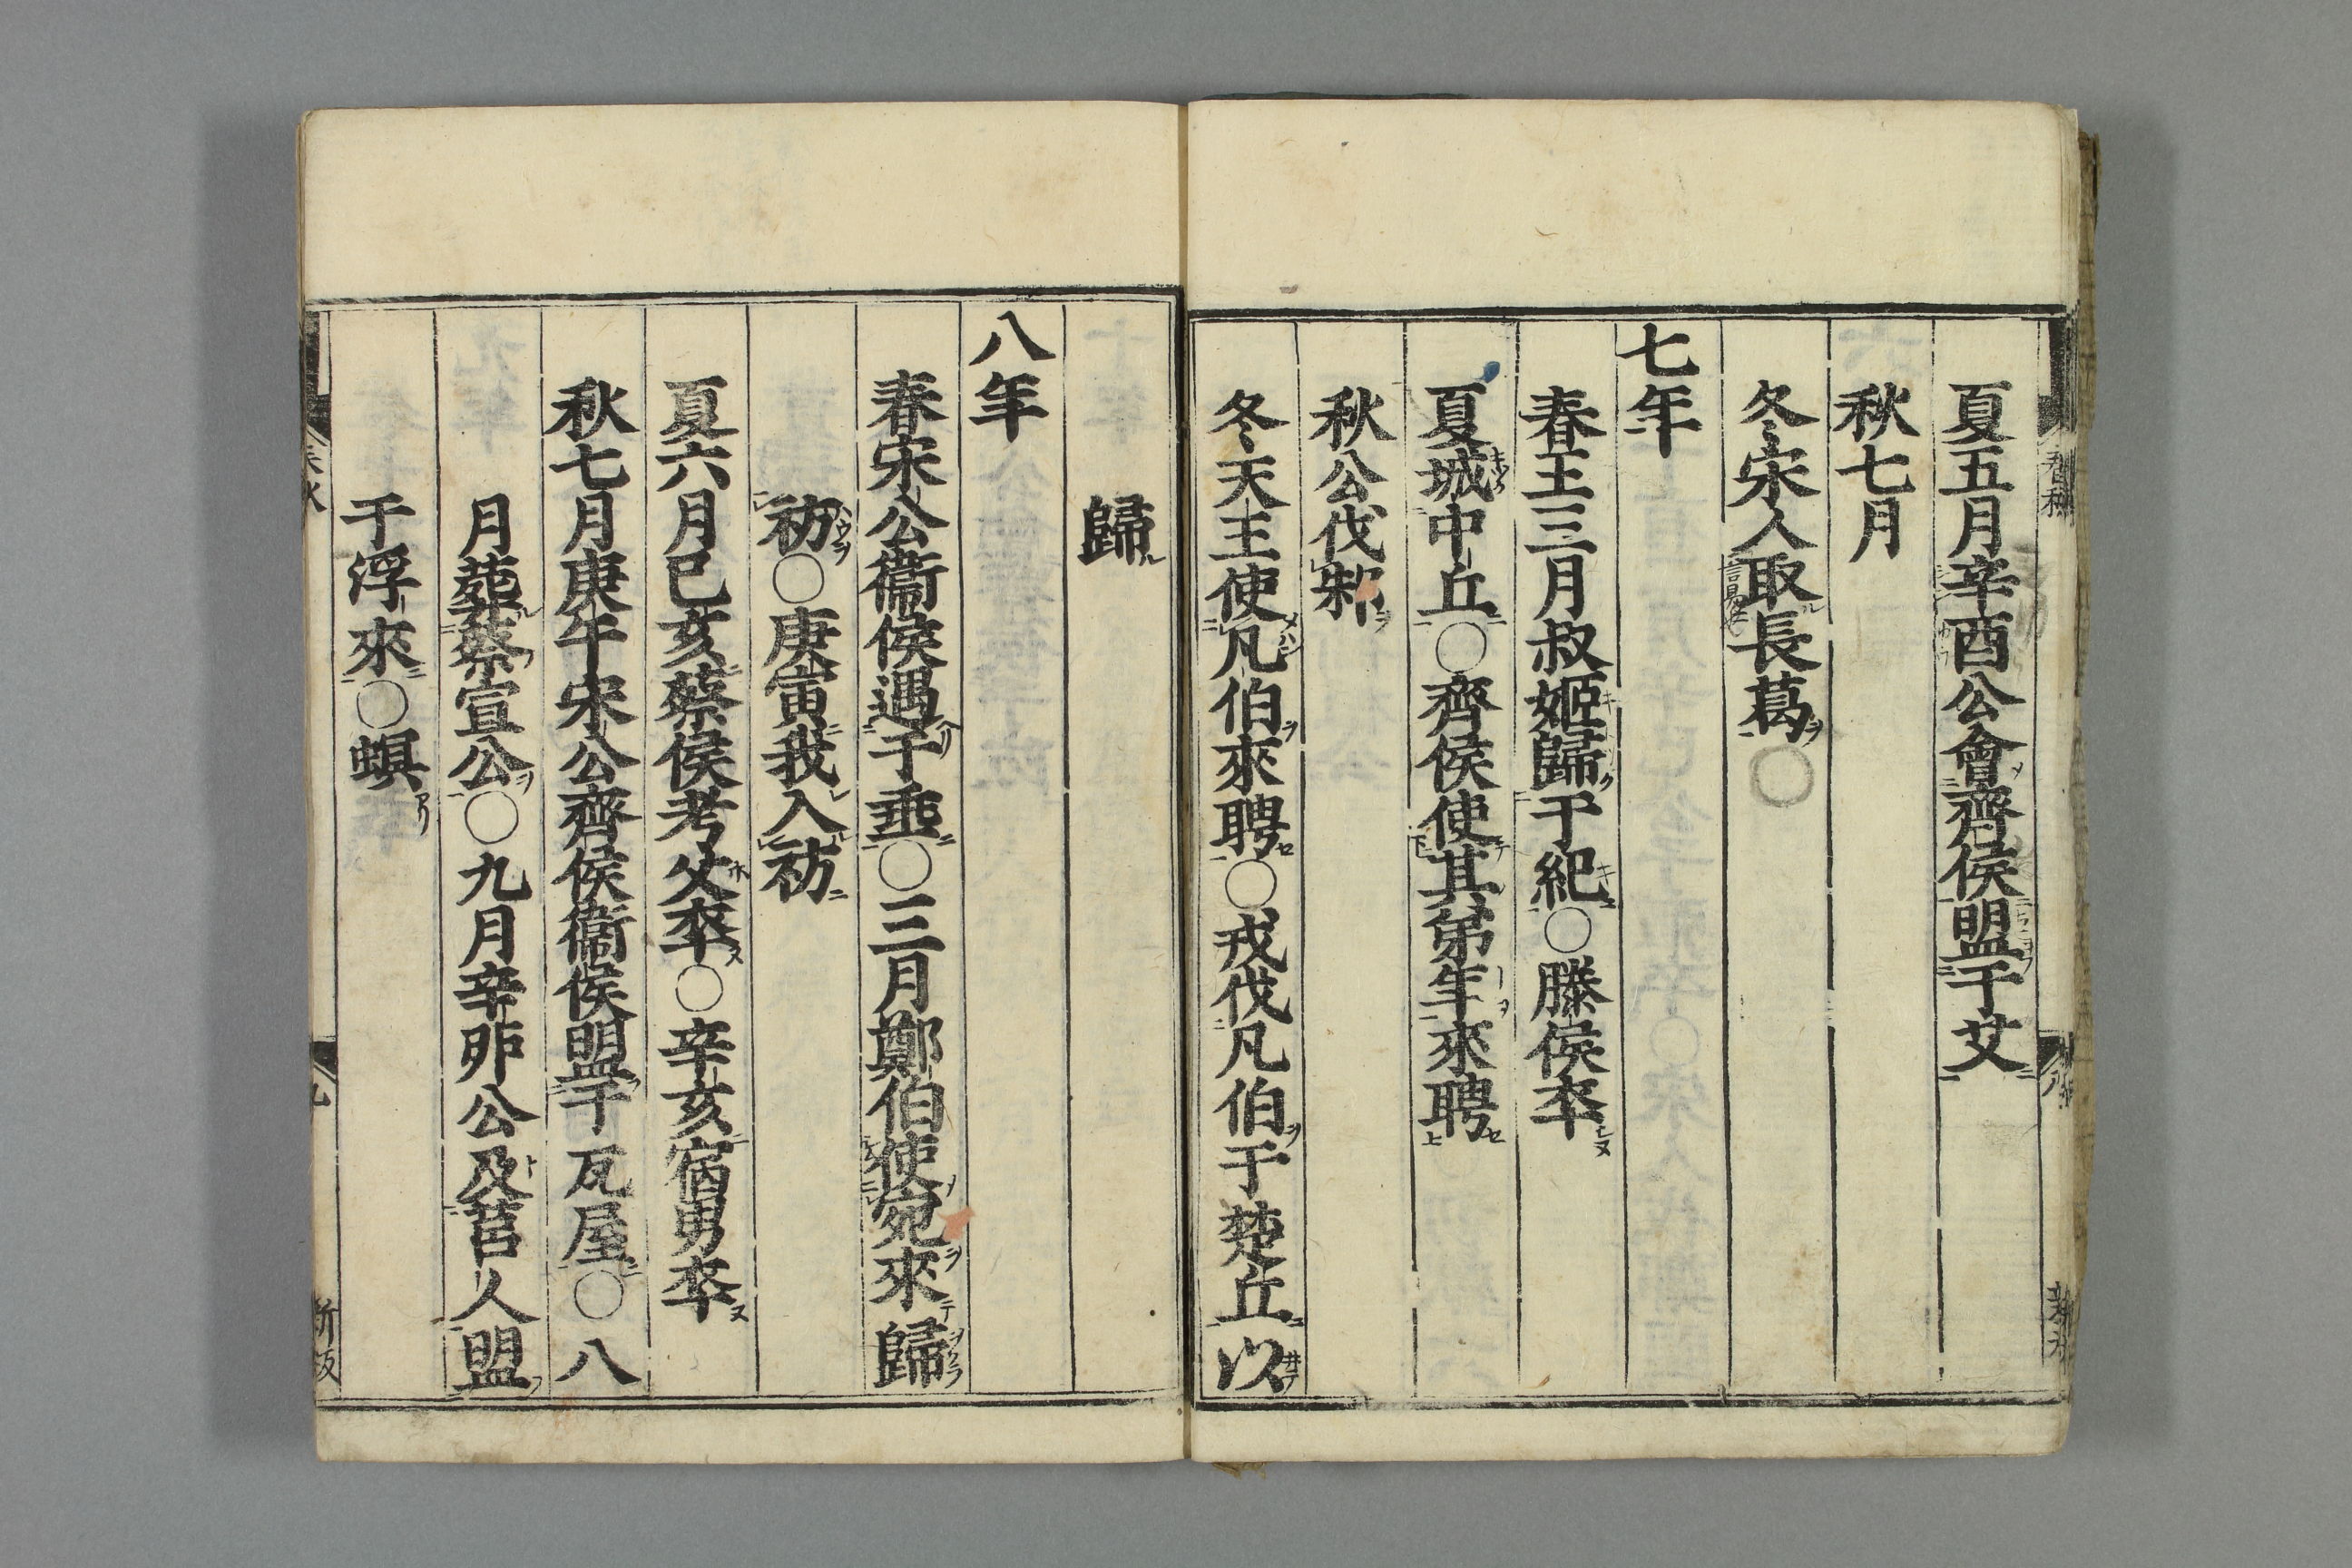 夏五月辛酉公會齊侯盟于艾
秋七月
冬宋人取長葛〇
七年
春王三月叔姬歸于紀〇滕侯卒
夏城中丘〇齊侯使其弟年來聘
秋公伐邾
冬天王使凡伯來聘〇戎伐凡伯于楚丘以
歸
八年
春宋公衞侯遇于垂〇三月鄭伯使宛來歸
祊〇庚寅我入祊
夏六月己亥蔡侯考父卒〇辛亥宿男卒
秋七月庚午宋公齊侯衞侯盟于瓦屋〇八
月葬蔡宣公〇九月辛卯公及莒人盟
于浮來〇螟